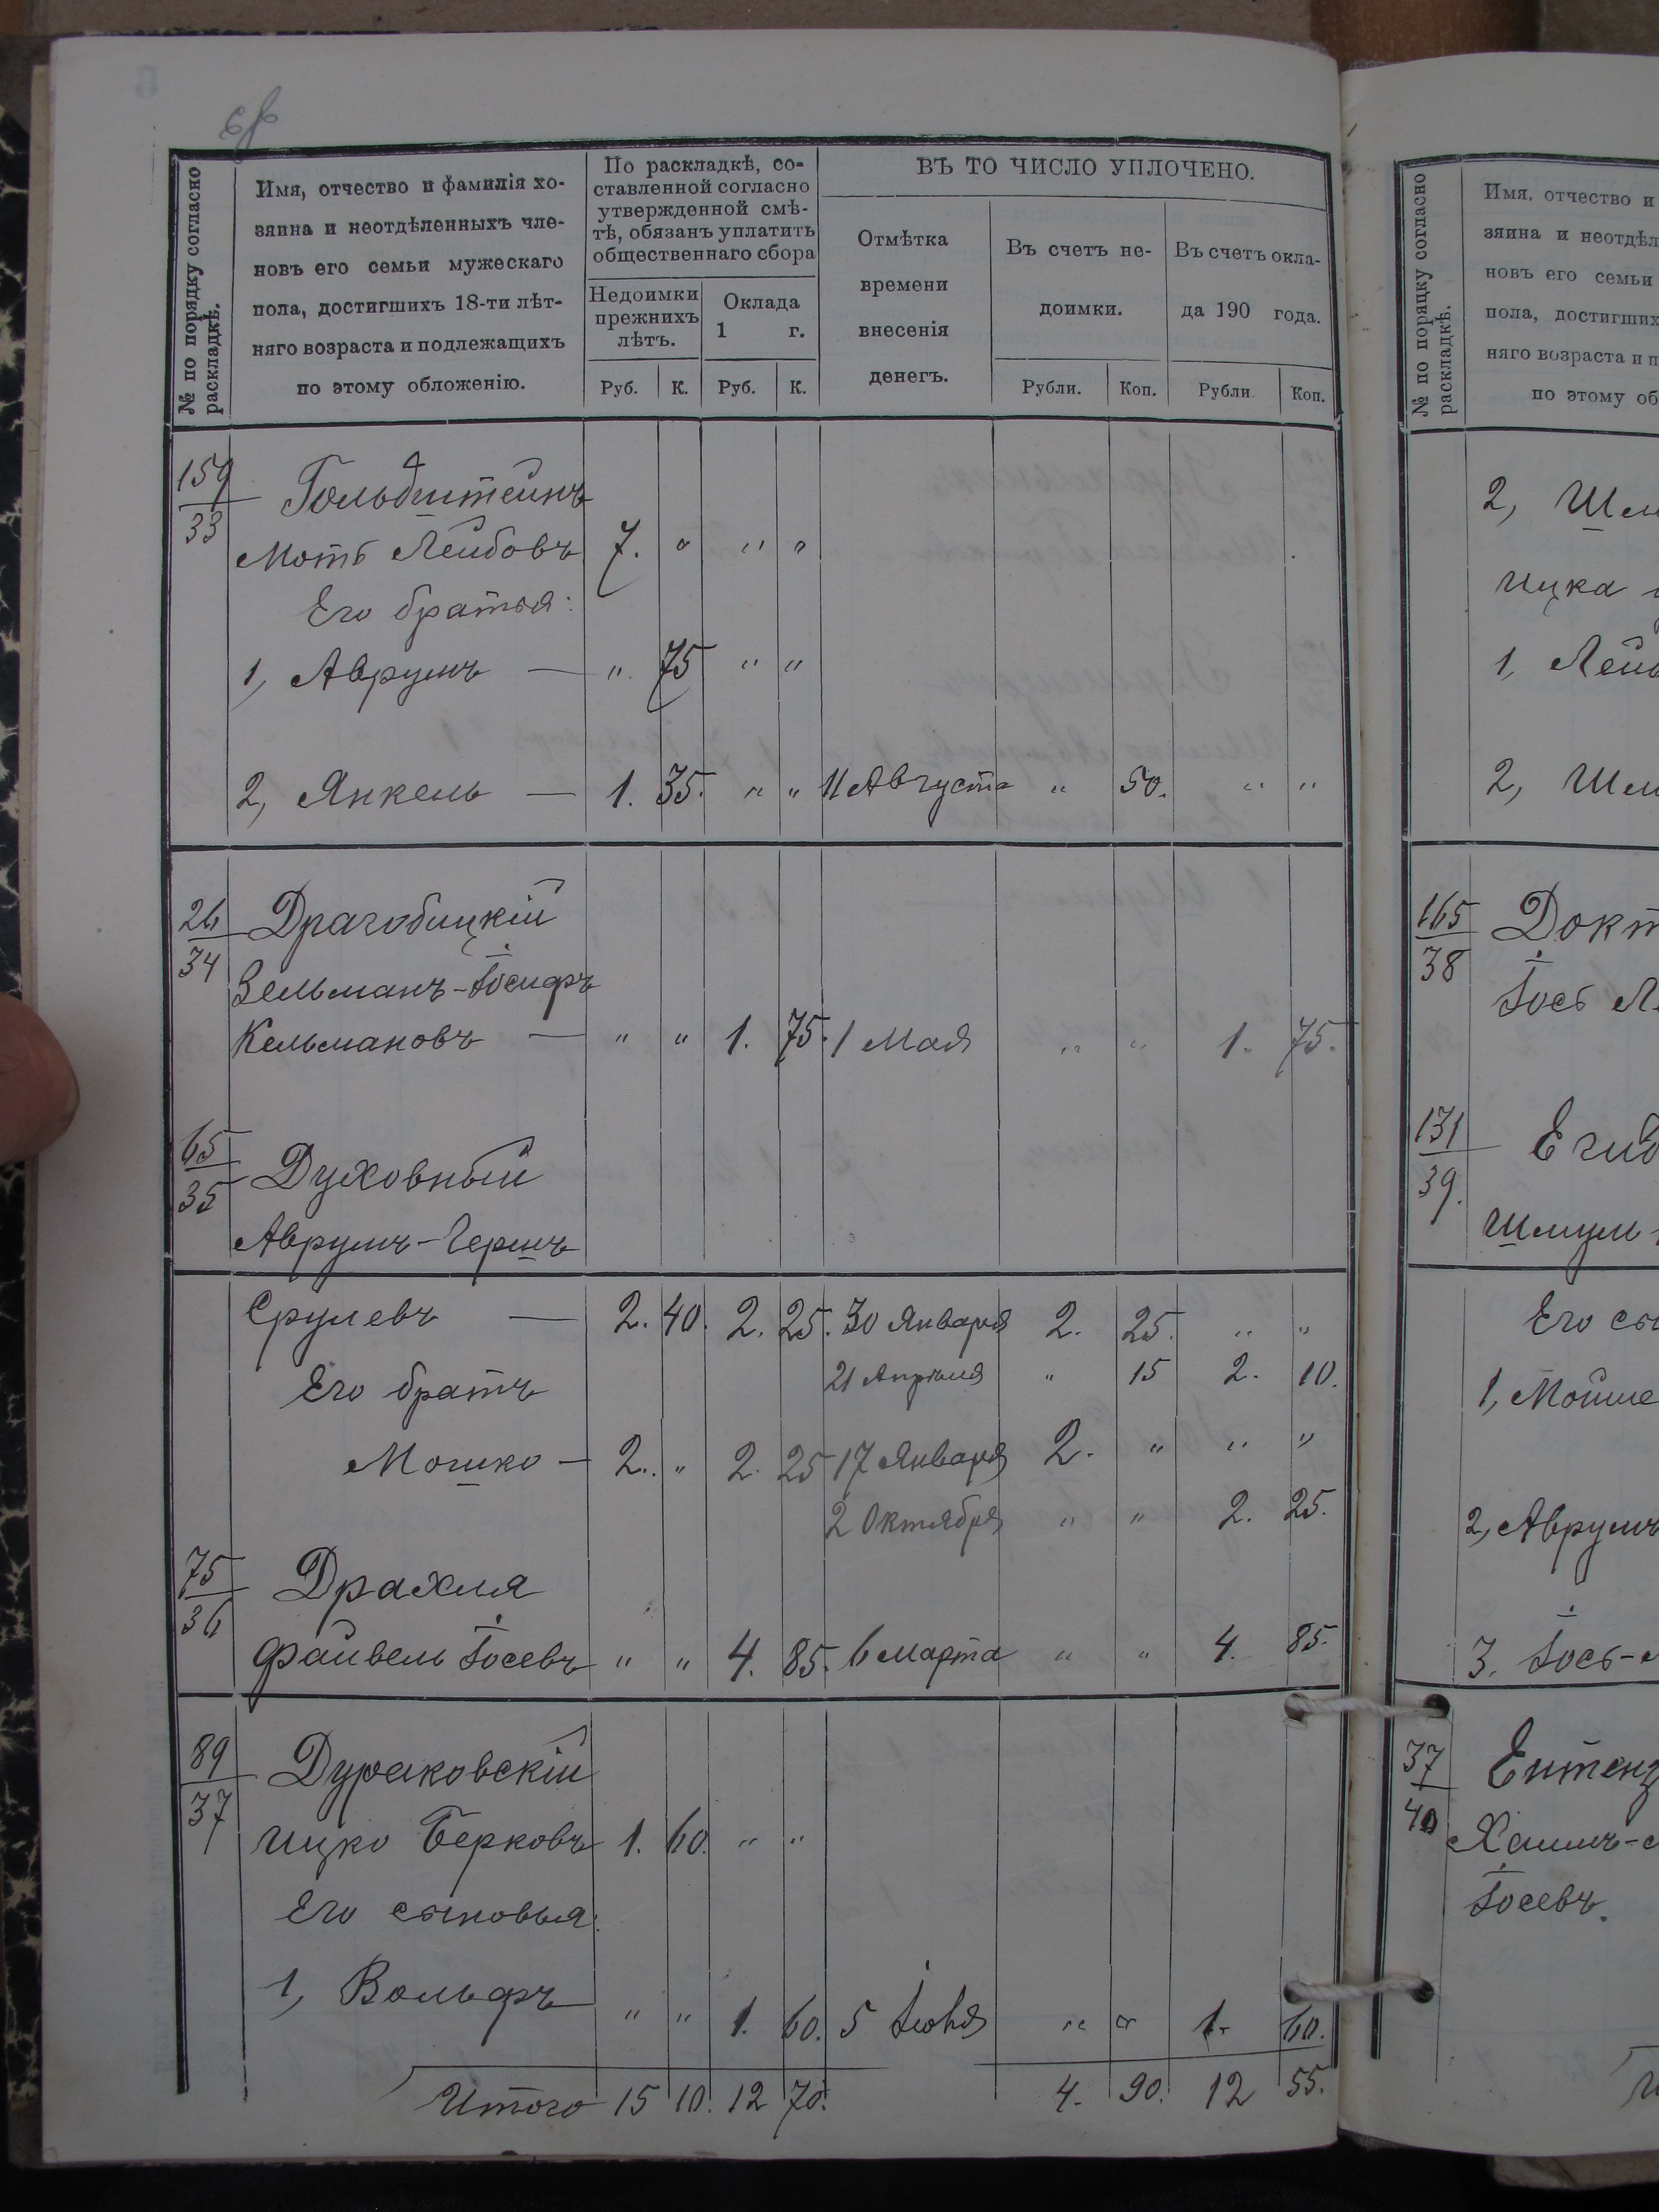 № по порядку согласно раскладкѣ.
Имя, отчество и фамилія хо-
зяина и неотдѣленныхъ чле-
новъ его семьи мужескаго
пола, достигшихъ 18-ти лѣт-
няго возраста и подлежащихъ
по этому обложенію.
По раскладкѣ, со-
ставленной согласно
утвержденной смѣ-
тѣ, обязанъ уплатить
общественнаго сбора
Недоимки прежнихъ лѣтъ.
Оклада 1 г.
Руб. К. Руб. К.
ВЪ ТО ЧИСЛО УПЛОЧЕНО.
Отмѣтка
времени
внесенія
денегъ.
Въ счетъ не-
доимки.
Въ счетъ окла-
да 190 года.
Рубли. Коп. Рубли. Коп.
159/33 Гольдштейнъ
Моть Лейбовъ 7. " " "
Его братья:
1, Аврумъ — " 75 " "
2, Янкель — 1. 35. " " 11 Августа " 50. " "
26/34 Драгобицкій
Зельманъ-Іосифъ
Кельмановъ — " " 1. 75. 1 Мая " " 1. 75.
65/35 Духовный
Аврумъ-Гершъ
Срулевъ — 2. 40. 2. 25. 30 Января 2. 25. " "
Его братъ 21 Апрѣля " 15 2. 10.
Мошко — 2. " 2. 25 17 Января 2. " " "
2 Октября " " 2. 25.
75/36 Драхля
Файвель Іосевъ " " 4. 85. 6 Марта " " 4. 85.
89/37 Дураковскій
Ицко Берковъ 1. 60. " "
Его сыновья:
1, Вольфъ " " 1. 60. 5 " " 1. 60.
Итого 15 10. 12 70. 4. 90. 12 55.
№ по порядку согласно раскладкѣ.
Имя, отчество и
зяина и неотдѣл
новъ его семьи
пола, достигших
няго возраста и п
по этому об
2,
Ицка
1,
2,
165/38 Докт
Іось
131/39.
Шмуль
Его сы
1, Мойше
2, Аврумъ
3. Іось-
37/40 Ентенз
Хаимъ-
Іосевъ.